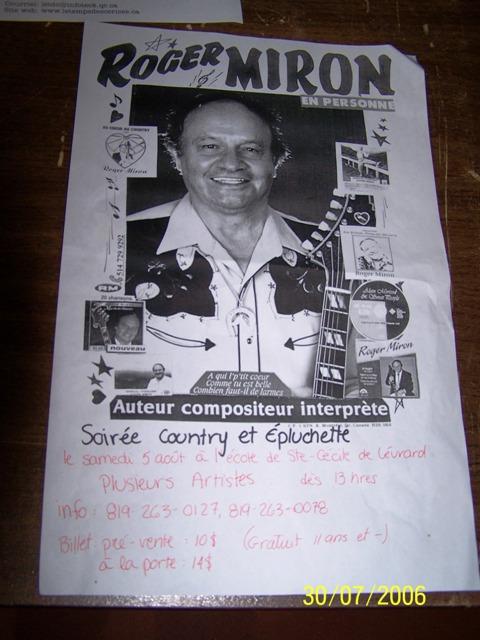 Courriel: lesdc@infoteck.qc.ca
Site web: www.letempsdescerises.ca
ROGER MIRON
EN PERSONNE
AU COEUR AU COUNTRY
Roger Miron
514.729.9292
RM
20 chansons
nouveau
Roger Miron
Alain Morisod
& Sweet People
Roger Miron
A qui l'p'tit coeur
Comme tu est belle
Combien faut-il de larmes
Auteur compositeur interprète
Soirée Country et Épluchette
le samedi 5 août à l'école de Ste-Cécile de Lévrard
Plusieurs Artistes dès 13 hres
info: 819-263-0127, 819-263-0078
Billet: pré-vente: 10$ (Gratuit 11 ans et -)
à la porte: 14$
30/07/2006